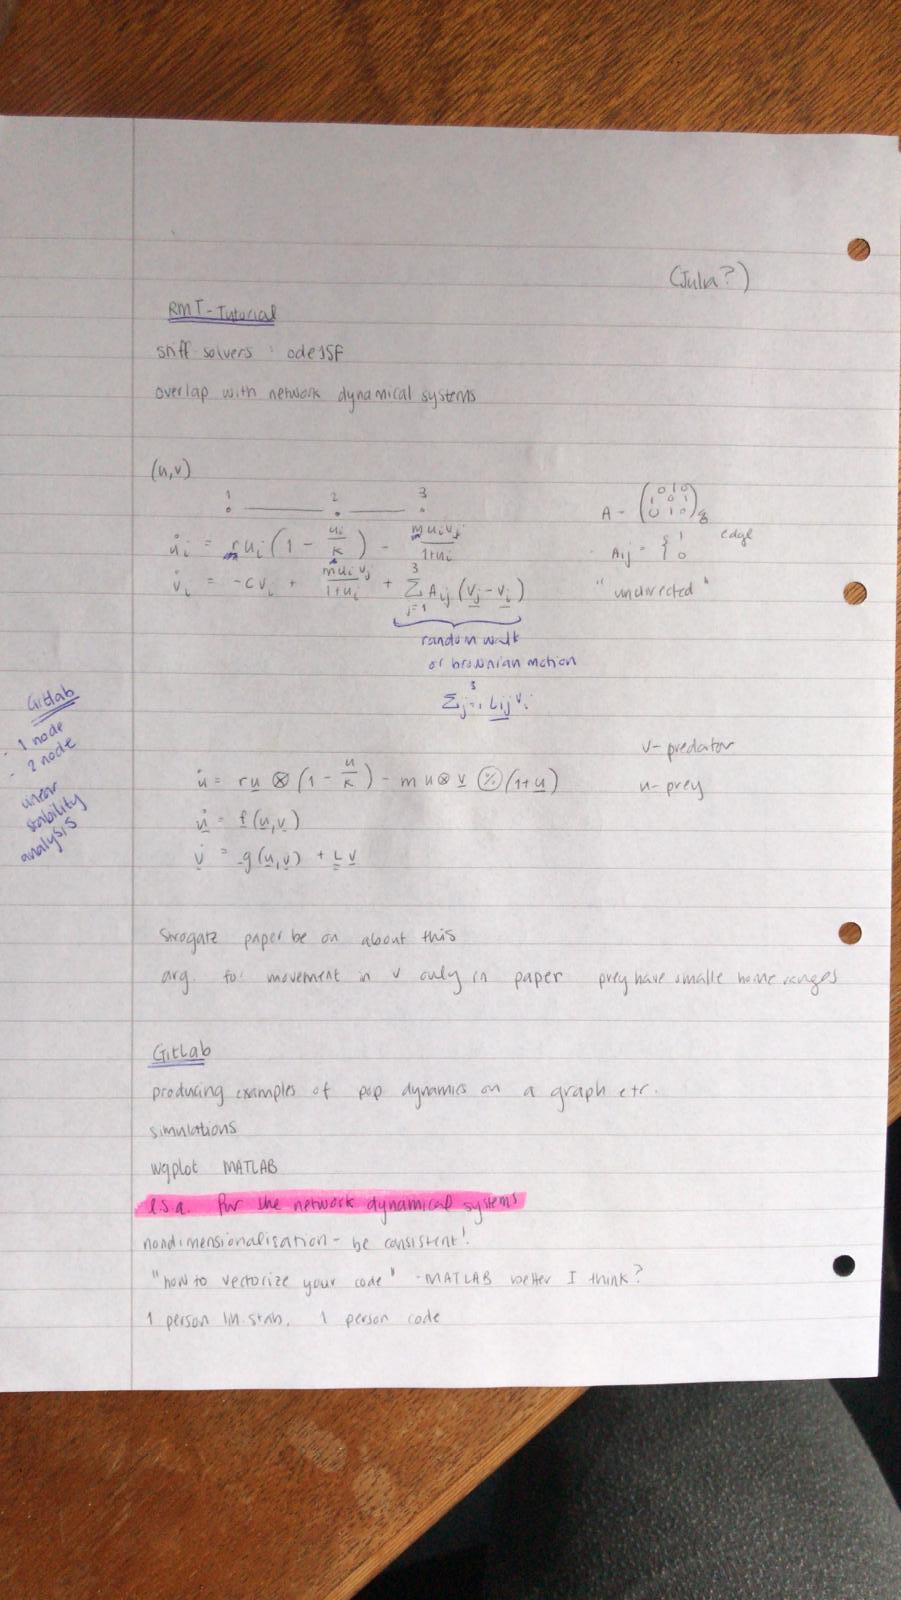 (Julia?)
RMT-Tutorial
stiff solvers : ode15F
overlap with network dynamical systems
(u,v)
1 2 3
A = (0 1 0
1 0 1
0 1 0)
u̇i = rui(1 - ui/K) - muivj/1+ui
Aij = { 1 edge
0
v̇i = -cvi + muivj/1+ui + Σ3j=1 Aij(vj-vi)
"undirected"
random walk
or brownian motion
Σ3j=1 Lijvi
Gitlab
- 1 node
- 2 node
linear
stability
analysis
v- predator
u̇ = ru ⊗ (1 - u/K) - m u ⊗ v ⊘ (1+u)
u- prey
u̇ = f(u,v)
v̇ = g(u,v) + L v
Strogatz paper be on about this
arg. for movement in v only in paper prey have smalle home ranges
GitLab
producing examples of pop dynamics on a graph etc.
simulations
wgplot MATLAB
l.s.a. for the network dynamical systems
nondimensionalisation - be consistent!
"how to vectorize your code" - MATLAB better I think?
1 person lin stab. 1 person code